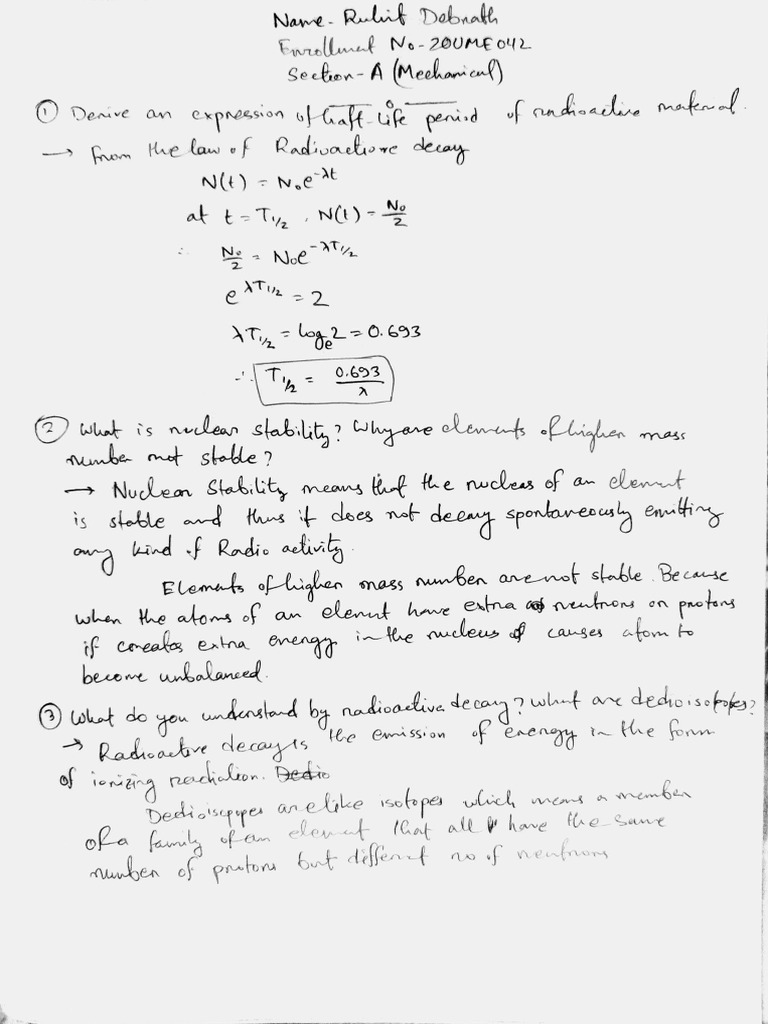 Name- Ruhit Debnath
Enrollment No-20UME042
Section-A (Mechanical)
① Derive an expression of half-life period of radioactive material.
→ From the law of Radioactive decay
N(t) = N₀e^-λt
at t = T1/2 , N(t) = N₀/2
∴ N₀/2 = N₀e^-λT1/2
e^λT1/2 = 2
λT1/2 = logₑ2 = 0.693
∴ T1/2 = 0.693/λ
② What is nuclear stability? Why are elements of higher mass
number not stable?
→ Nuclear Stability means that the nucleas of an element
is stable and thus it does not decay spontaneously emitting
any kind of Radio activity.
Elements of higher mass number are not stable. Because
when the atoms of an element have extra neutrons or protons
it creates extra energy in the nucleus causes atom to
become unbalanced.
③ What do you understand by radioactive decay? What are dedioisotopes?
→ Radioactive decay is the emission of energy in the form
of ionizing radiation. Dedio
Dedioisopopes are like isotopes which means a member
of a family of an element that all have the same
number of protons but different no of neutrons